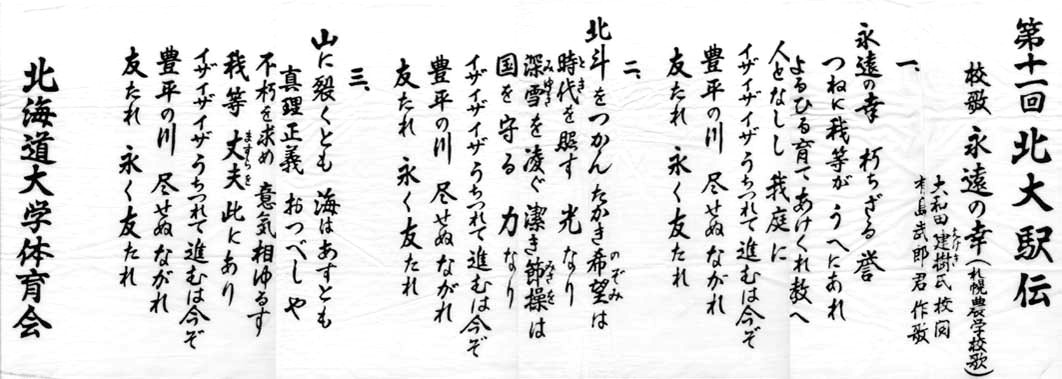 第十一回 北大駅伝
校歌 永遠の幸(札幌農学校歌)
大和田建樹氏 校閲
有島武郎君 作歌
一、
永遠の幸 朽ちざる 誉
つねに我等が うへにあれ
よるひる育て あけくれ教へ
人となしし 我庭に
イザイザイザ うちつれて 進むは今ぞ
豊平の川 尽せぬながれ
友たれ 永く友たれ
二、
北斗をつかん たかき希望は
時代を照す 光なり
深雪を凌ぐ 潔き節操は
国を守る 力なり
イザイザイザ うちつれて 進むは今ぞ
豊平の川 尽せぬながれ
友たれ 永く友たれ
三、
山は裂くとも 海はあすとも
真理正義 おつべしや
不朽を求め 意気相ゆるす
我等丈夫 此にあり
イザイザイザ うちつれて 進むは今ぞ
豊平の川 尽せぬながれ
友たれ 永く友たれ
北海道大学体育会